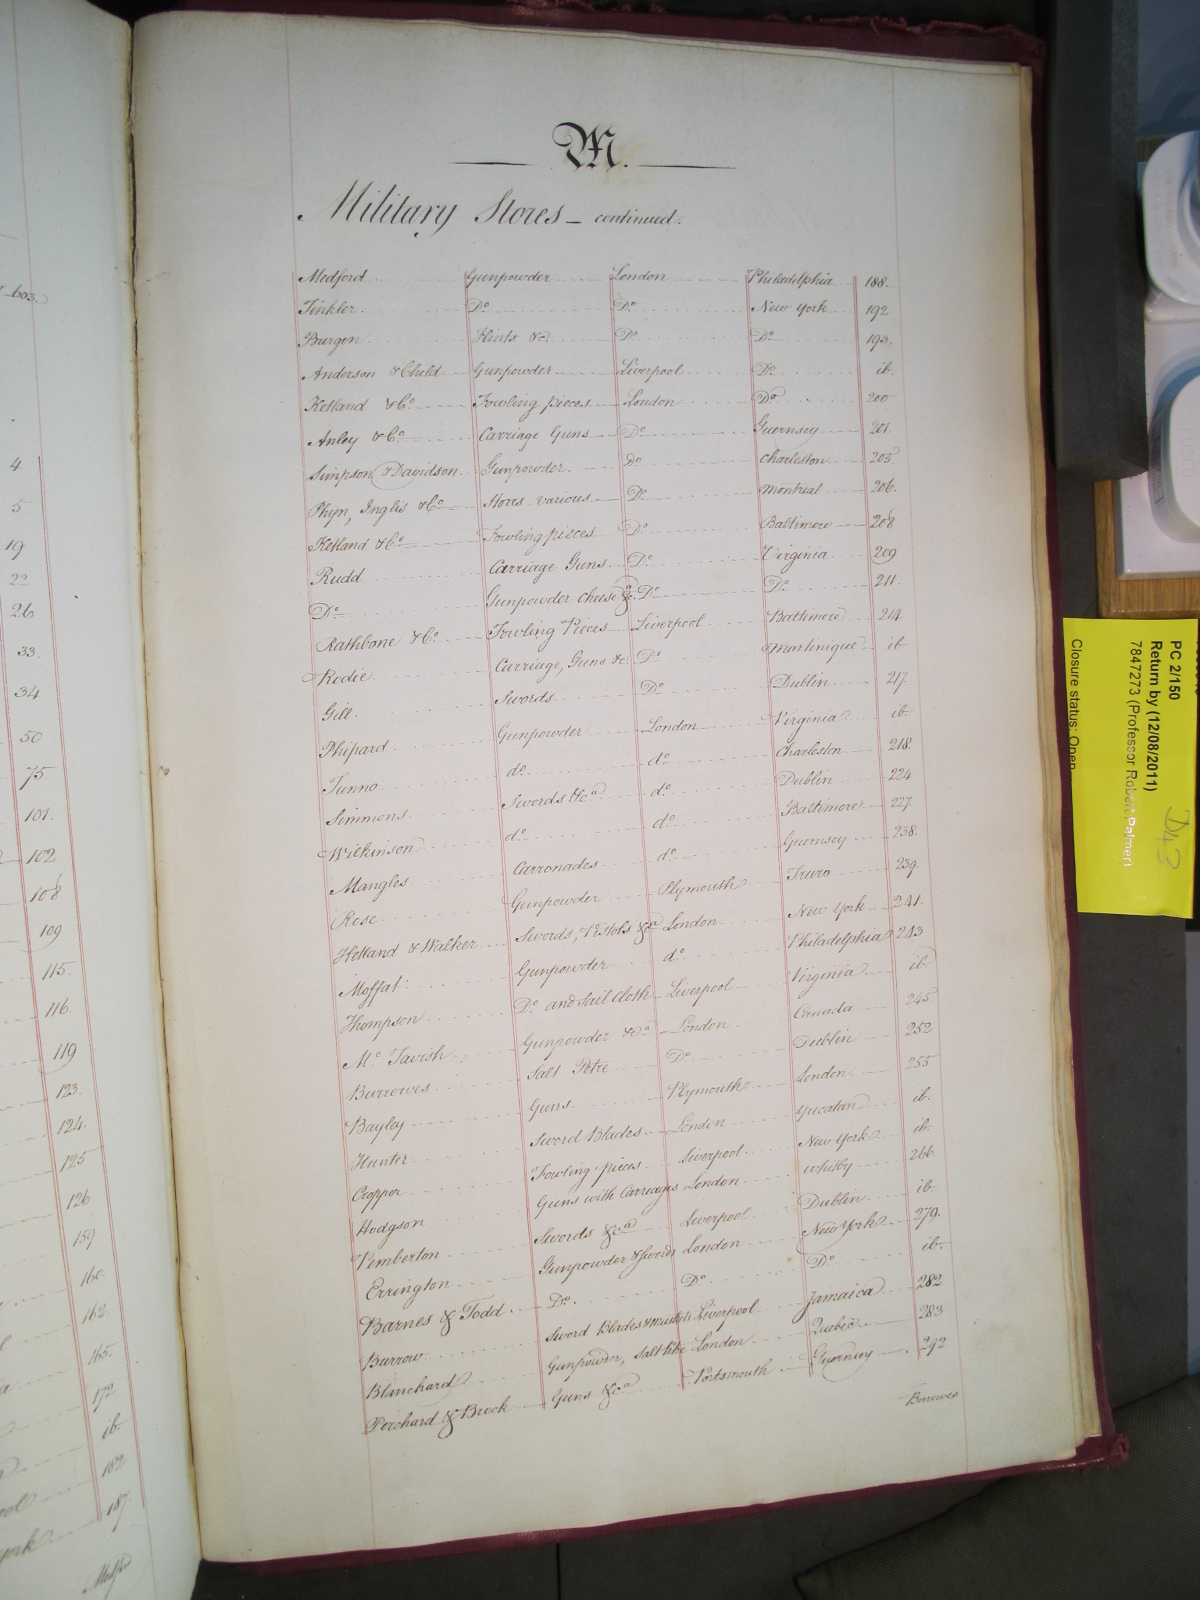 4
5
19
22
26
33.
34
50
75.
101.
102
108
109
115.
116
119
123.
124.
125
126
159
160.
162.
165.
172
ib.
182
187.
Medford
M.
Military Stores – continued.
Medford Gunpowder London Philadelphia 188.
Tinkler Do. Do. New York 192
Burgin Flints &c. Do. Do. 193.
Anderson & Child Gunpowder Liverpool Do. ib.
Ketland & Co. Fowling pieces London Do. 200
Anley & Co. Carriage Guns Do. Guernsey 201.
Simpson & Davidson Gunpowder do. Charleston 205
Phyn, Inglis & Co. Stores various Do. Montreal 206.
Ketland & Co. Fowling pieces Do. Baltimore 208
Rudd Carriage Guns Do. Virginia 209
Do. Gunpowder cheese &c. Do. Do. 211.
Rathbone & Co. Fowling Pieces Liverpool Baltimore 214
Rodie Carriage, Guns &c. Do. Martinique ib.
Gill Swords Do. Dublin 217.
Phipard Gunpowder London Virginia ib.
Tunno do. do. Charleston 218.
Simmons Swords &ca do. Dublin 224
Wilkinson do. do. Baltimore 227.
Mangles Carronades do. Guernsey 238.
Rose Gunpowder Plymouth Truro 239.
Ketland & Walker Swords, Pistols &ca London New York 241.
Moffat Gunpowder do. Philadelphia 243
Thompson Do. and Sail Cloth Liverpool Virginia ib.
Mc. Tavish Gunpowder &ca London Canada 245.
Burrowes Salt Petre Do. Dublin 252
Bayley Guns Plymouth London 255
Hunter Sword Blades London Yucatan ib.
Cropper Fowling pieces Liverpool New York ib.
Hodgson Guns with Carriages London Whitby 266
Pemberton Swords &ca Liverpool Dublin ib.
Errington Gunpowder & Swords London New York 279.
Barnes & Todd Do. Do. Do. ib.
Burrow Sword Blades & muskets Liverpool Jamaica 282
Blanchard Gunpowder, London Quebec 283
Perchard & Brock Guns &ca Portsmouth Guernsey 292
Borrowes
PC 2/150
Return by (12/08/2011)
7847273 (Professor Robert Palmer)
Closure status: Open
D43